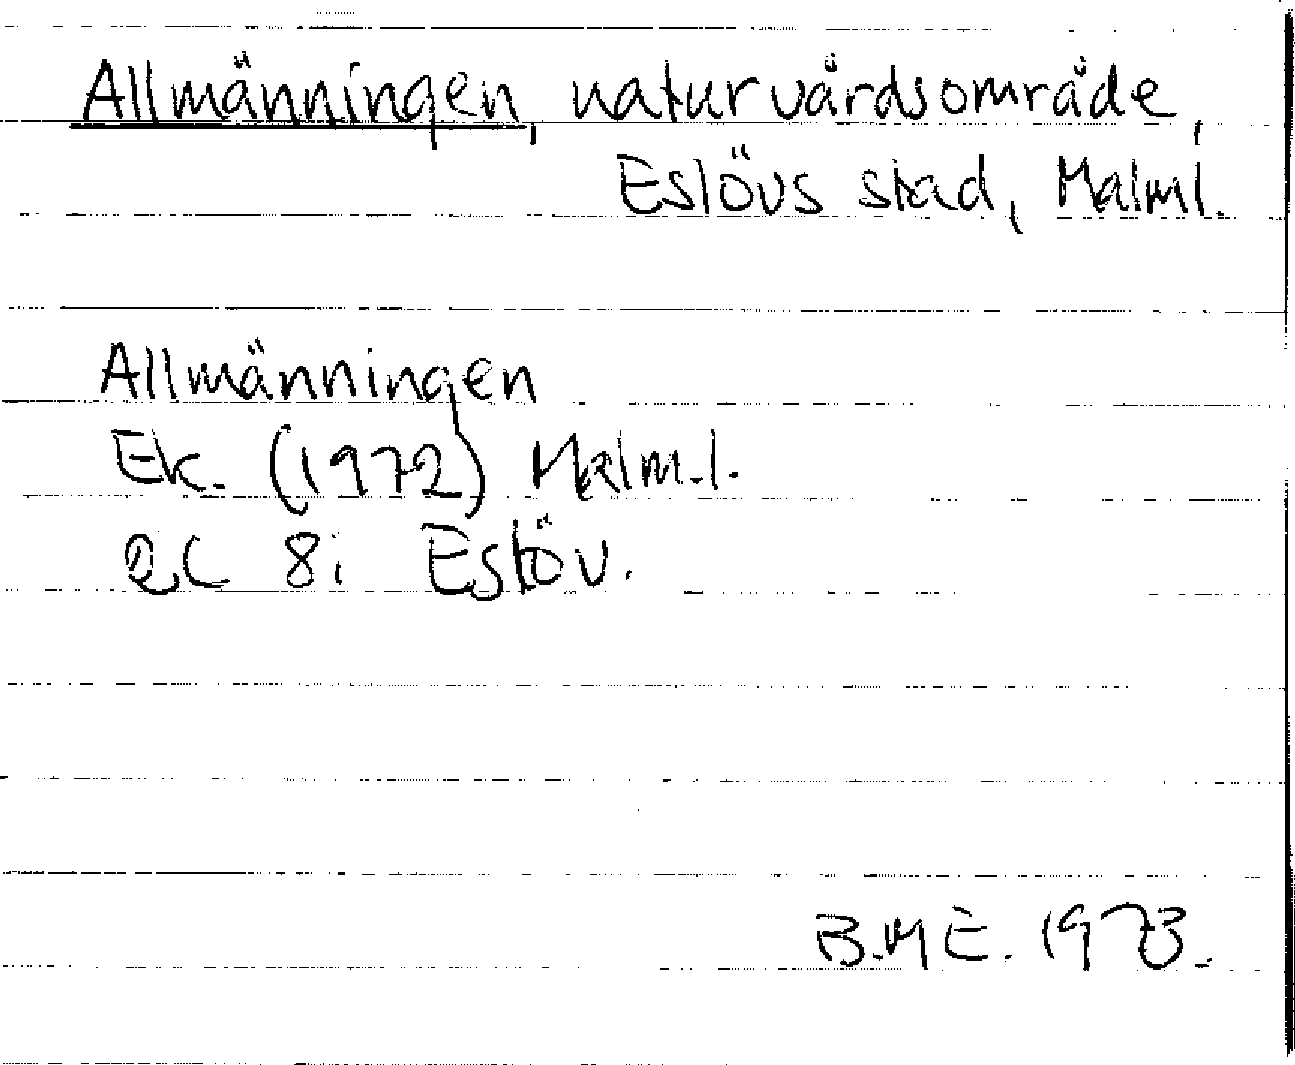 Allmänningen, naturvårdsområde,
Eslövs stad, Malml.
Allmänningen
Ek. (1972) Malm.l.
2C 8i Eslöv.
B.M E. 1973.